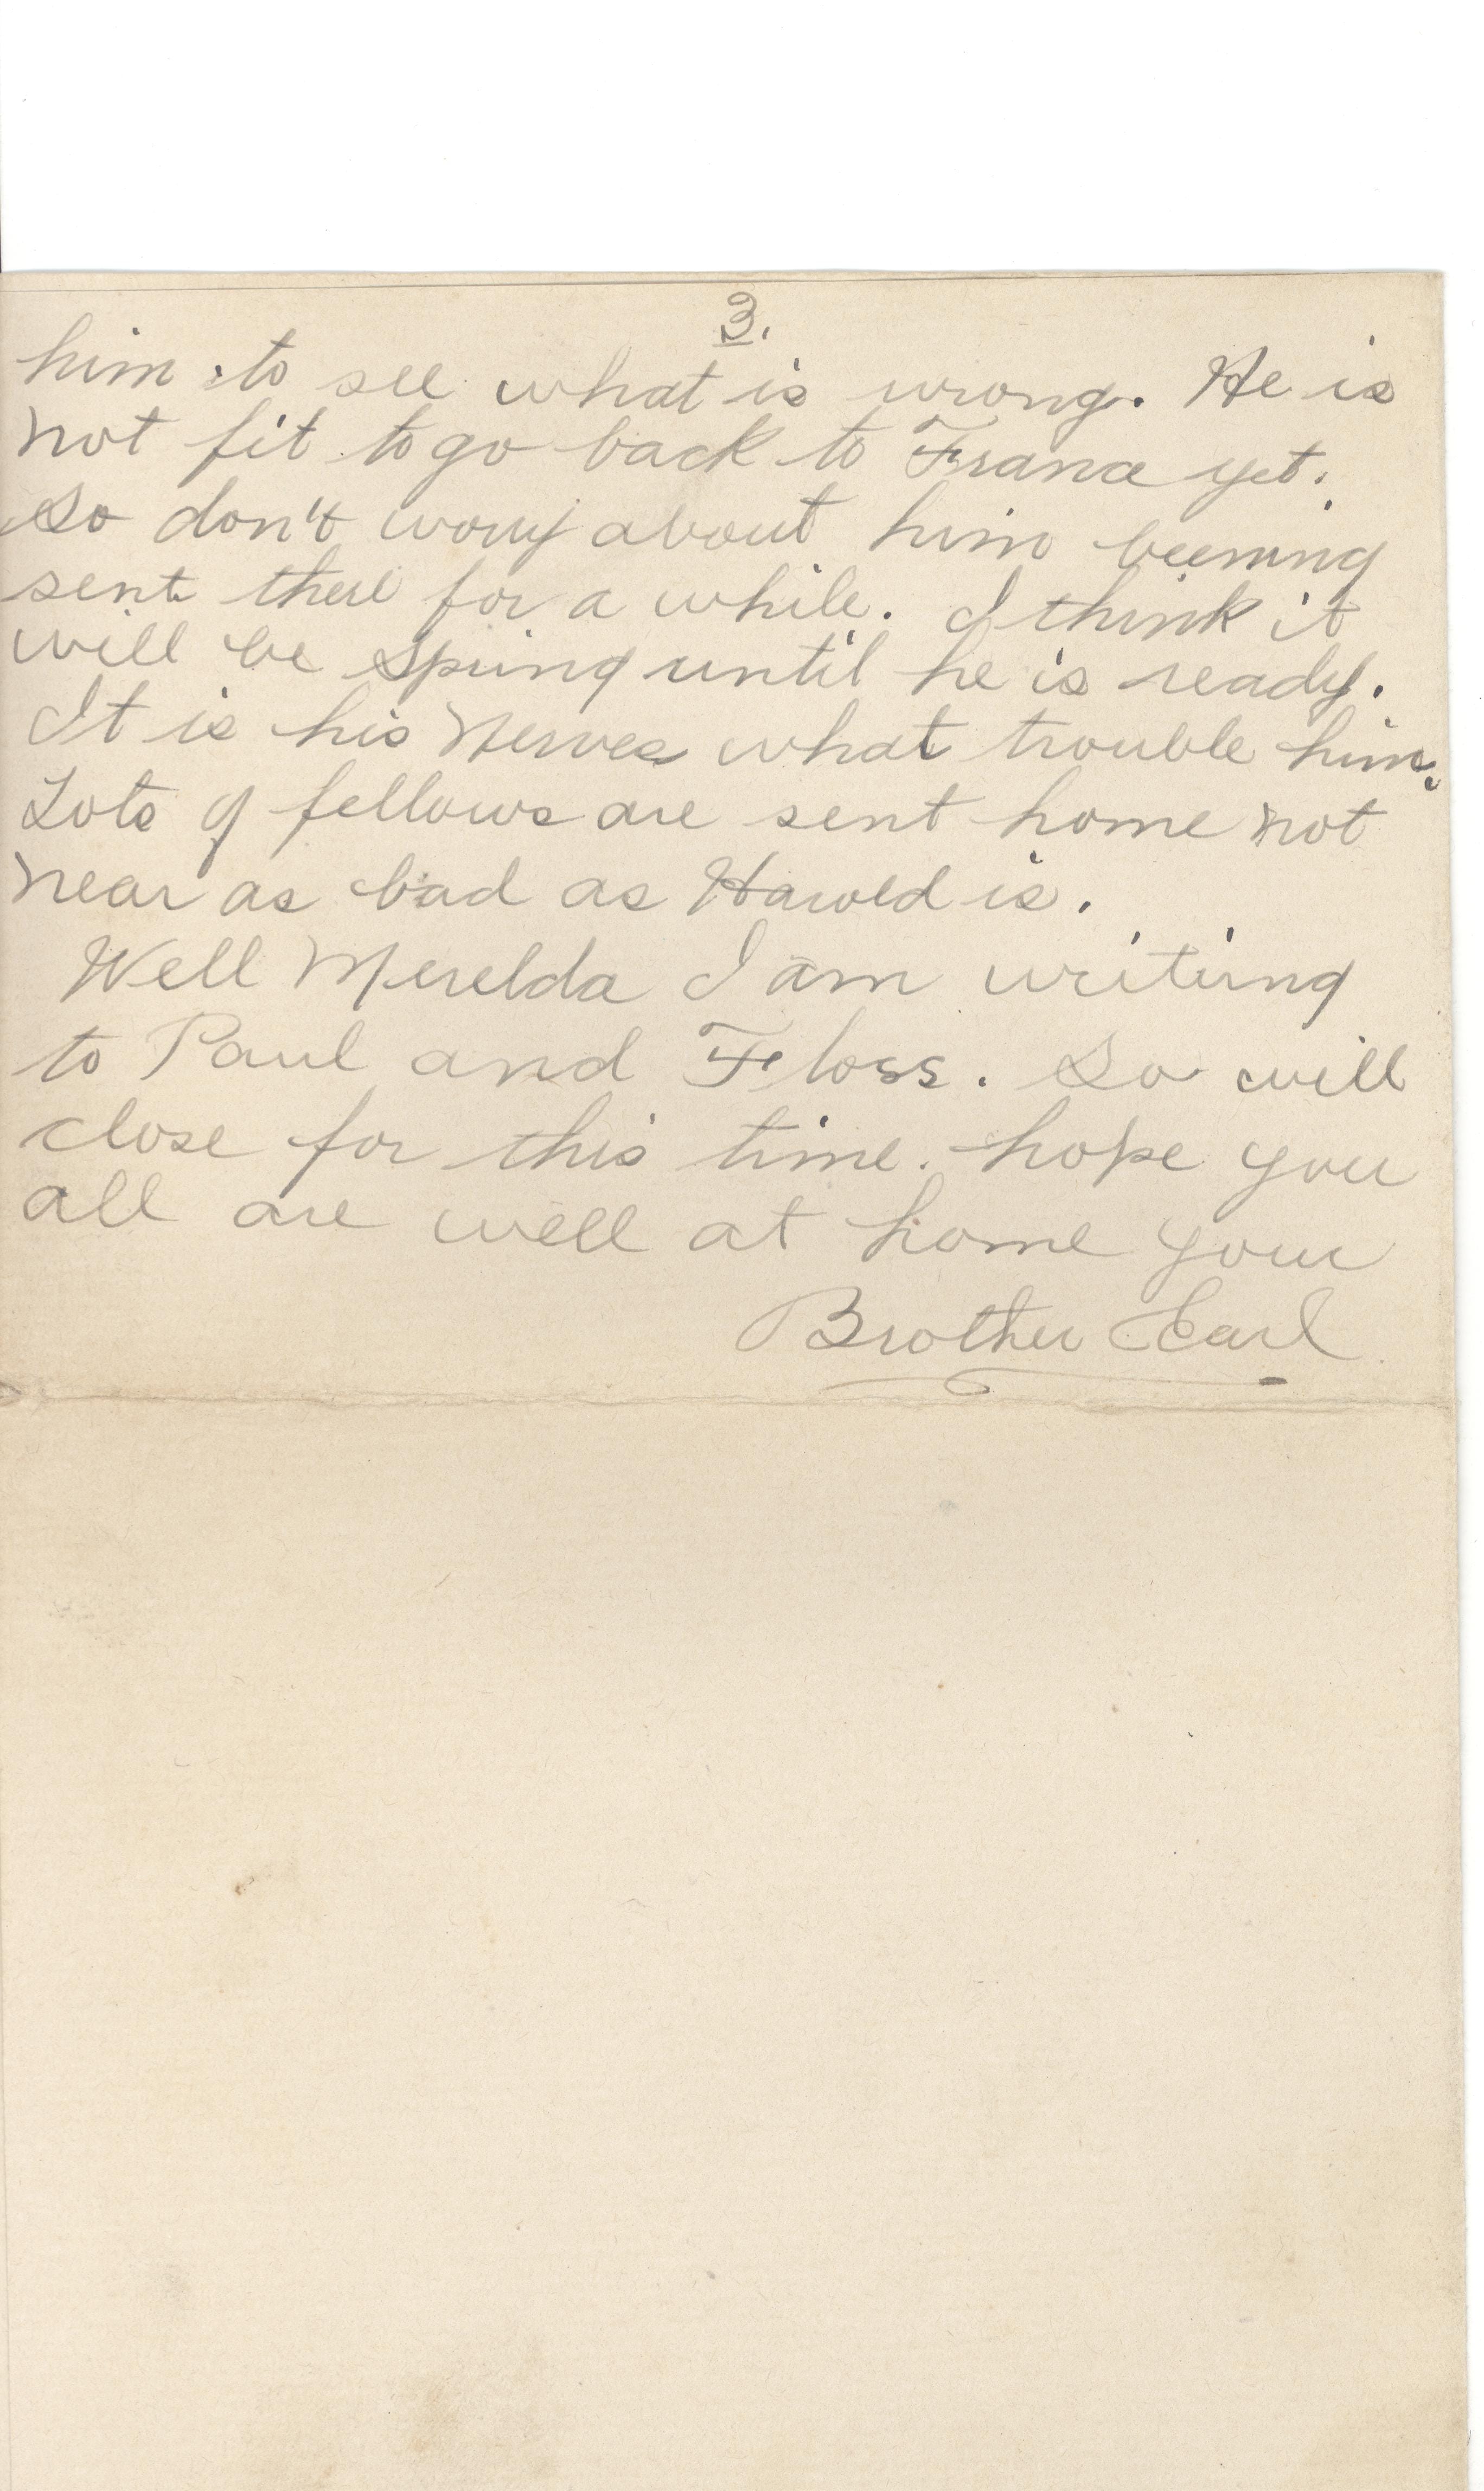 3.
him to see what is wrong. He is
not fit to go back to France yet.
So don't worry about him beening
sent there for a while. I think it
will be Spring until he is ready.
It is his Nerves what trouble him.
Lots of fellows are sent home not
near as bad as Harold is.
Well Merelda I am writing
to Paul and Floss. So will
close for this time. hope you
all are well at home your
Brother Earl